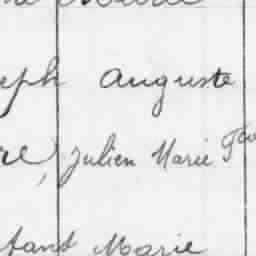 eph Auguste
re, Julien Marie
fant Marie